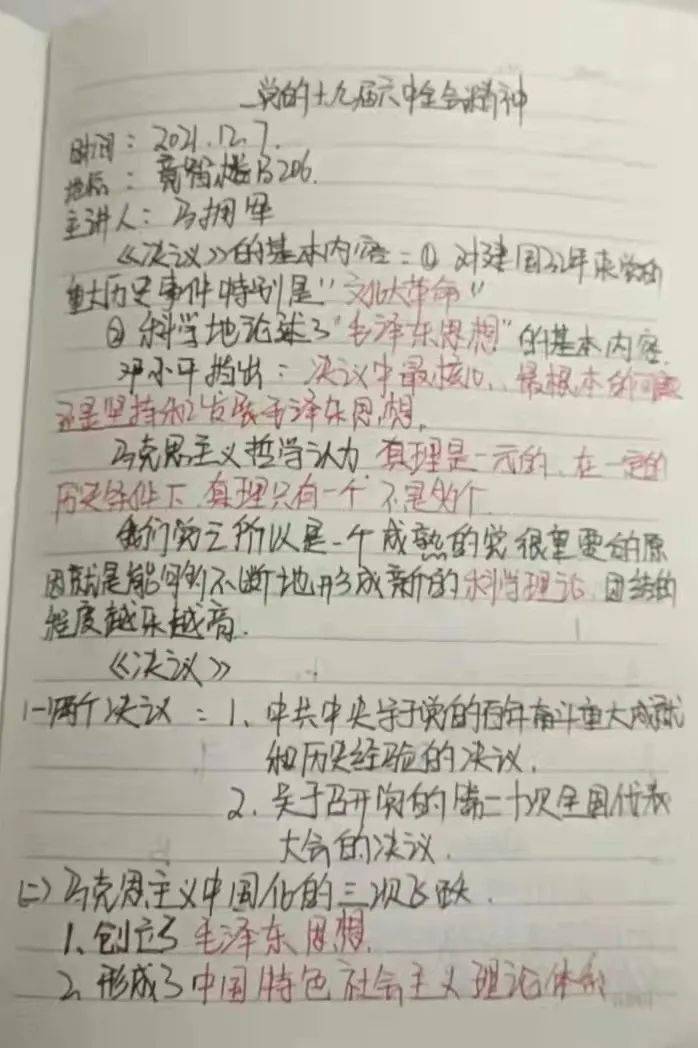 党的十九届六中全会精神
时间：2021.12.7.
地点：竟智楼B206.
主讲人：马拥军
《决议》的基本内容：① 对建国32年来党的
重大历史事件特别是"文化大革命"
② 科学地论述了"毛泽东思想"的基本内容.
邓小平指出：决议中最核心、最根本的问题
还是坚持和发展毛泽东思想。
马克思主义哲学认为 真理是一元的、在一定的
历史条件下，真理只有一个，不是多个.
我们党之所以是一个成熟的党 很重要的原
因就是能够不断地形成新的科学理论，团结的
程度越来越高.
《决议》
(一)两个决议：1、中共中央关于党的百年奋斗重大成就
和历史经验的决议.
2、关于召开党的第二十次全国代表
大会的决议.
(二)马克思主义中国化的三次飞跃.
1、创立了毛泽东思想.
2、形成了中国特色社会主义理论体系